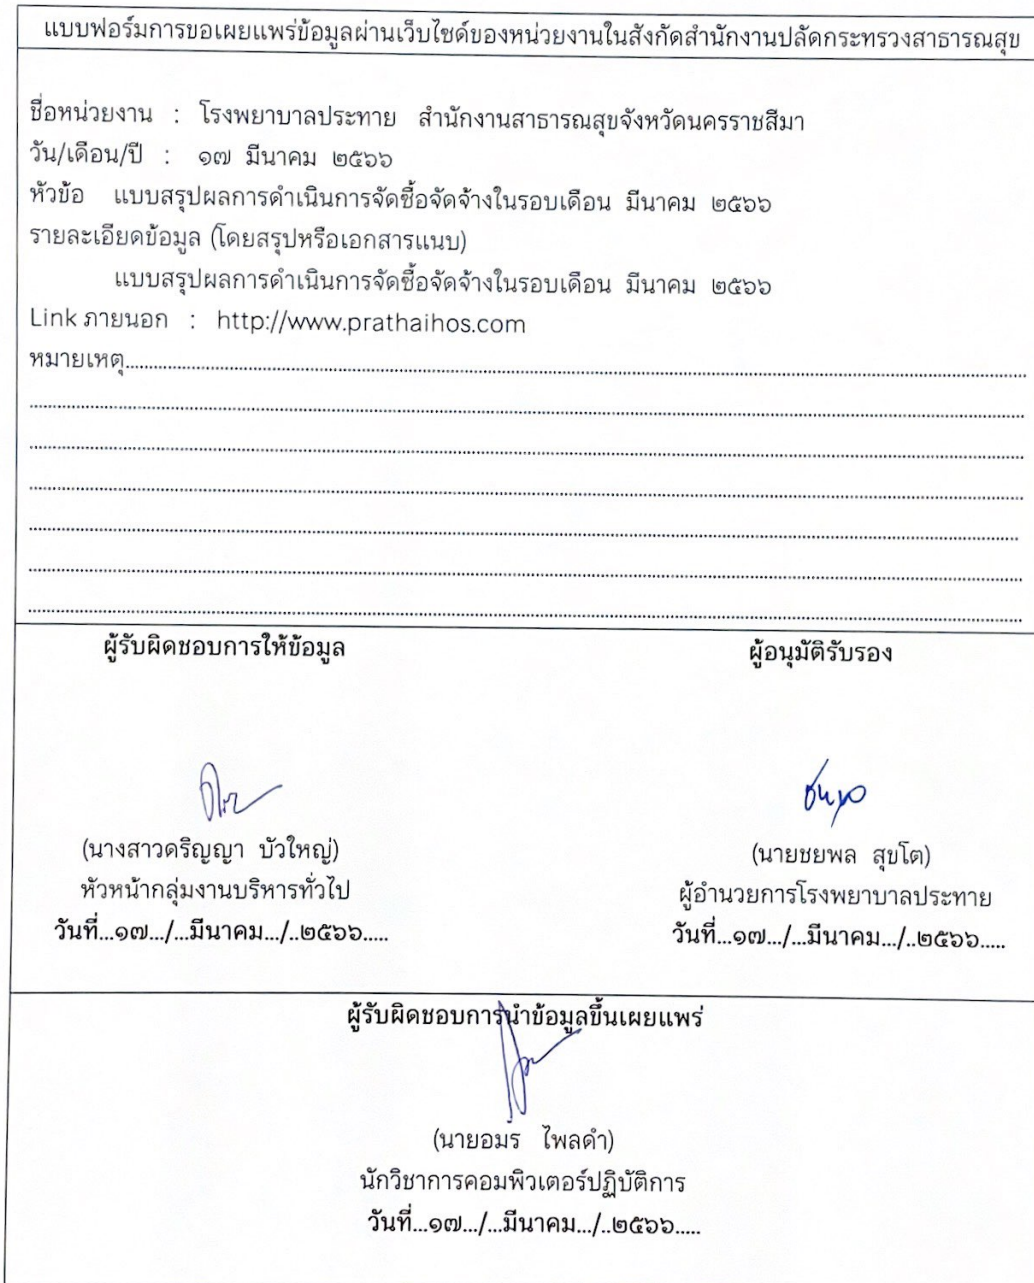 แบบฟอร์มการขอเผยแพร่ข้อมูลผ่านเว็บไซต์ของหน่วยงานในสังกัดสำนักงานปลัดกระทรวงสาธารณสุข
ชื่อหน่วยงาน : โรงพยาบาลประทาย สำนักงานสาธารณสุขจังหวัดนครราชสีมา
วัน/เดือน/ปี : ๑๗ มีนาคม ๒๕๖๖
หัวข้อ แบบสรุปผลการดำเนินการจัดซื้อจัดจ้างในรอบเดือน มีนาคม ๒๕๖๖
รายละเอียดข้อมูล (โดยสรุปหรือเอกสารแนบ)
แบบสรุปผลการดำเนินการจัดซื้อจัดจ้างในรอบเดือน มีนาคม ๒๕๖๖
Link ภายนอก : http://www.prathaihos.com
หมายเหตุ
ผู้รับผิดชอบการให้ข้อมูล
ผู้อนุมัติรับรอง
(นางสาวดริญญา บัวใหญ่)
(นายชยพล สุขโต)
หัวหน้ากลุ่มงานบริหารทั่วไป
ผู้อำนวยการโรงพยาบาลประทาย
วันที่...๑๗.../...มีนาคม.../..๒๕๖๖.....
วันที่...๑๗.../...มีนาคม.../..๒๕๖๖.....
ผู้รับผิดชอบการนำข้อมูลขึ้นเผยแพร่
(นายอมร ไพลดำ)
นักวิชาการคอมพิวเตอร์ปฏิบัติการ
วันที่...๑๗.../...มีนาคม.../..๒๕๖๖.....